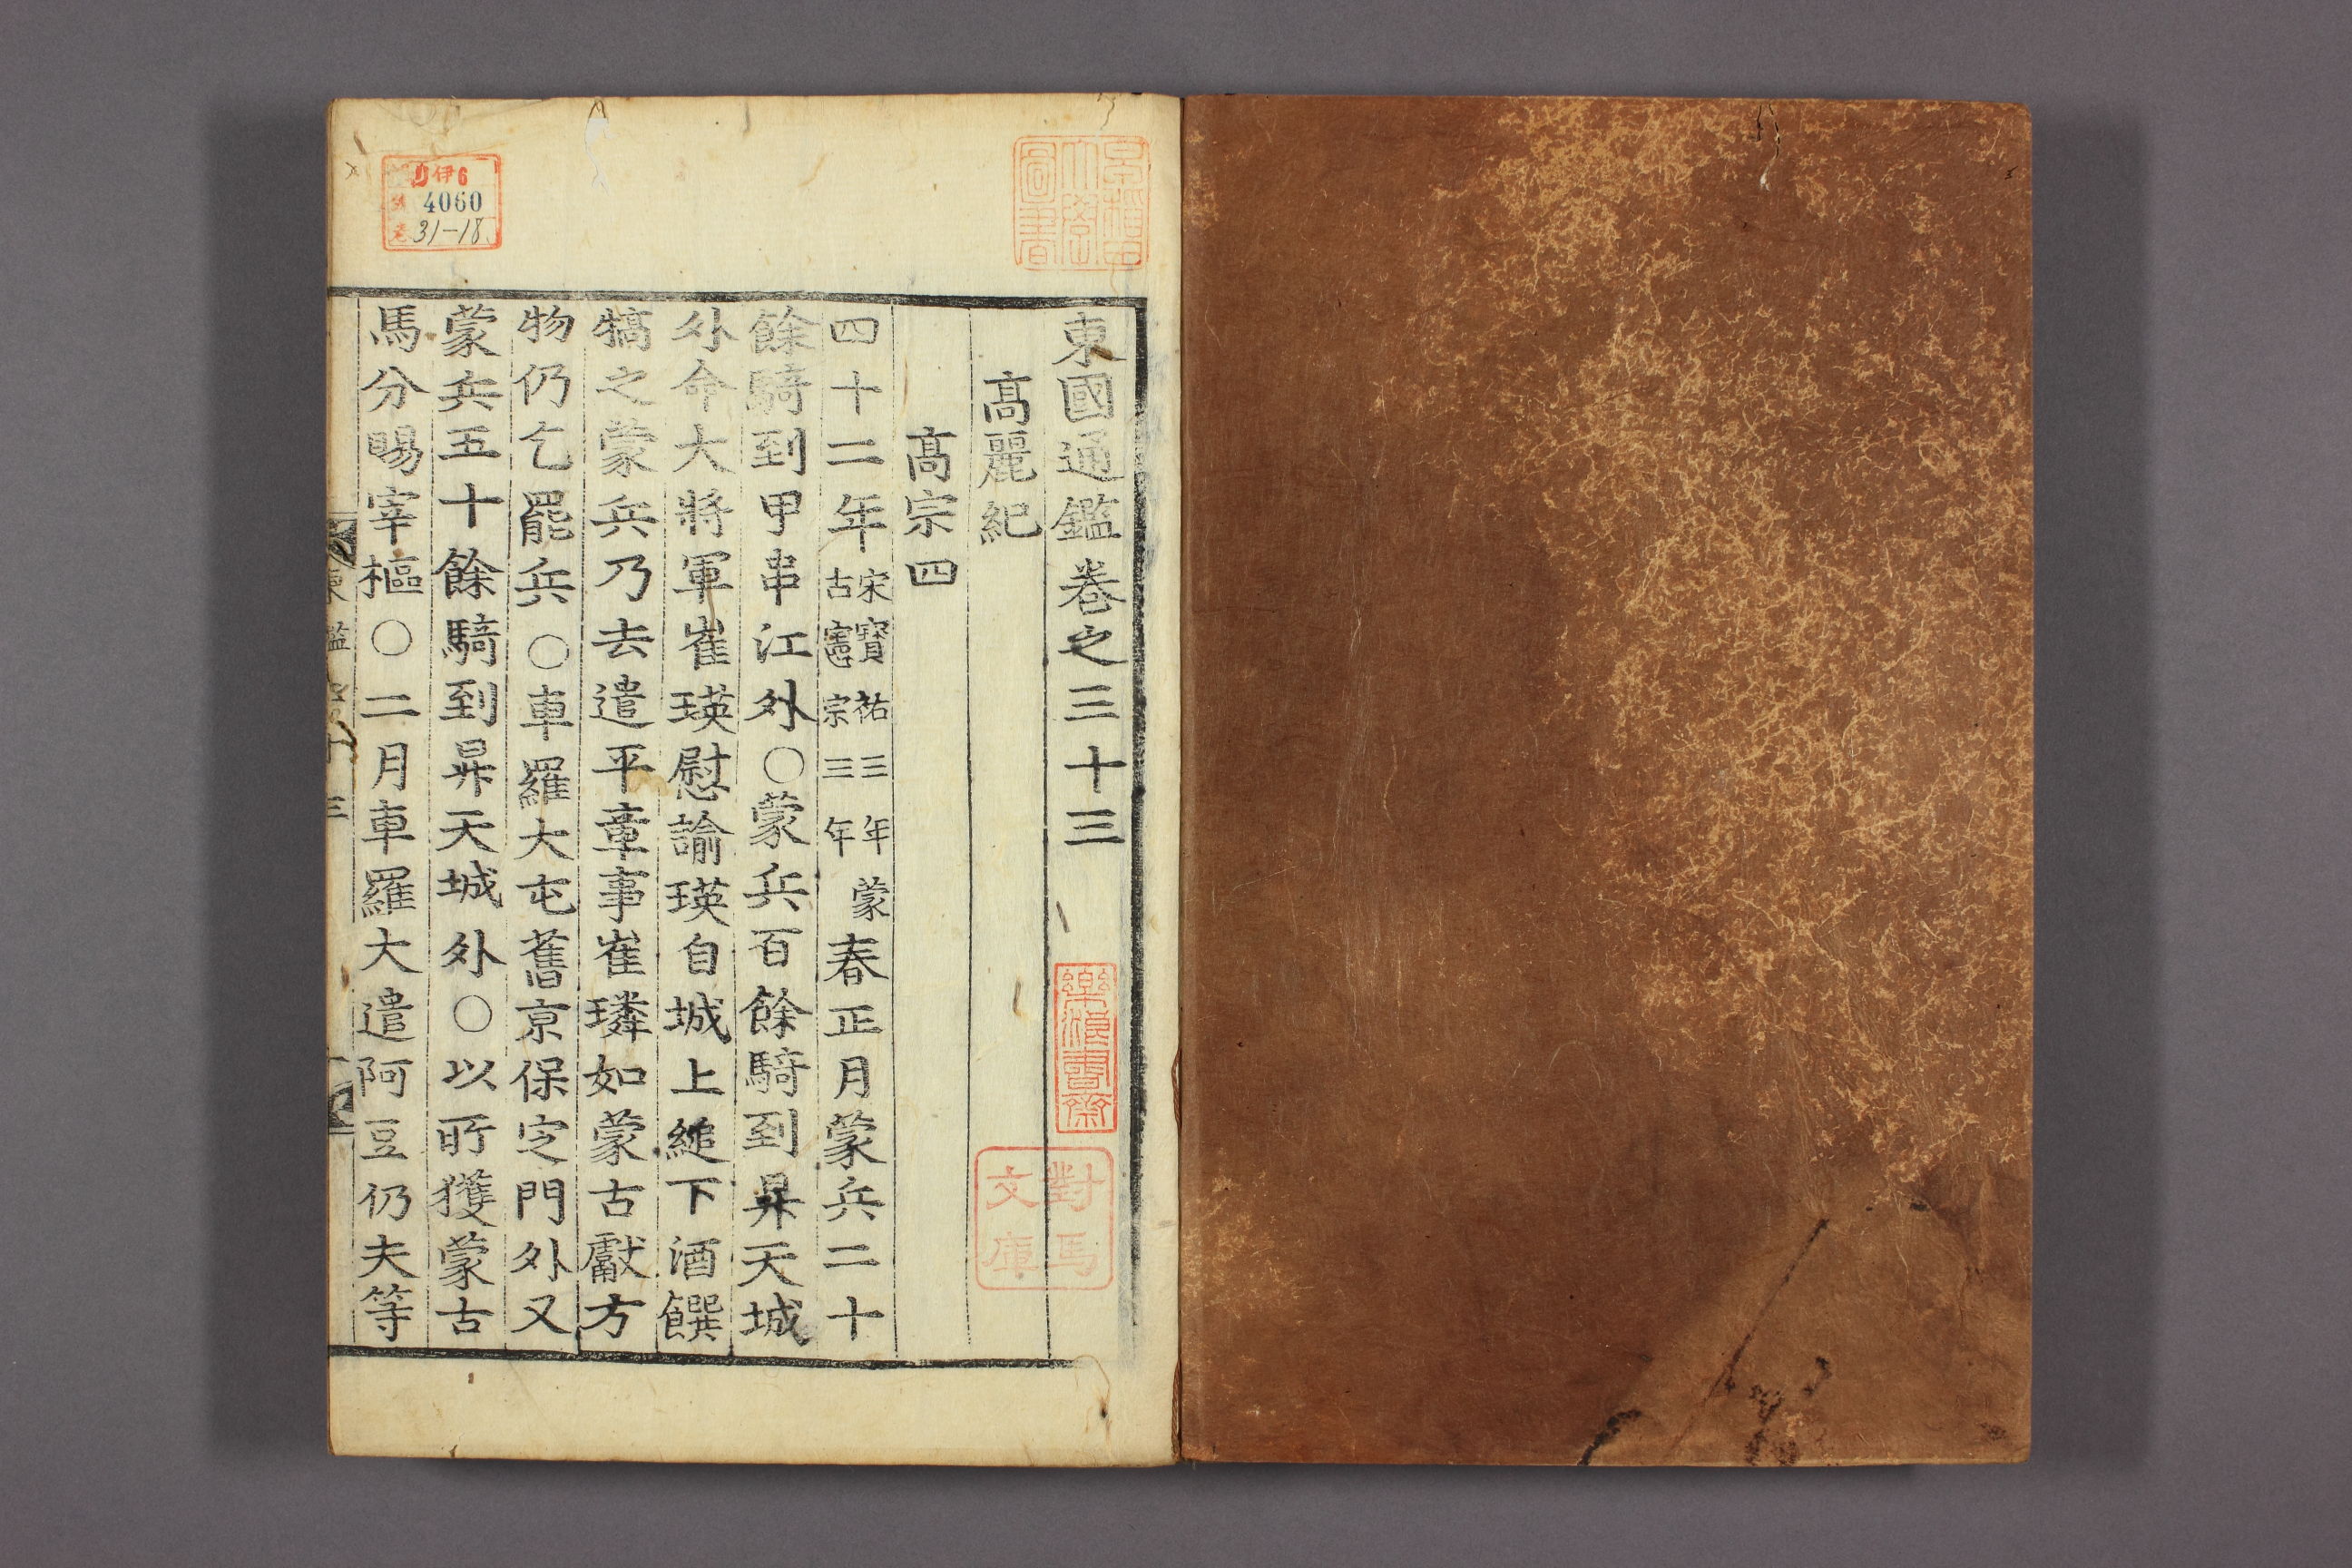 東國通鑑卷之三十三
高麗紀
高宗四
四十二年宋寶祐三年蒙古憲宗三年春正月蒙兵二十
餘騎到甲串江外○蒙兵百餘騎到昇天城
外命大將軍崔瑛慰諭瑛自城上縋下酒饌
犒之蒙兵乃去遣平章事崔璘如蒙古獻方
物仍乞罷兵○車羅大屯舊京保定門外又
蒙兵五十餘騎到昇天城外○以所獲蒙古
馬分賜宰樞○二月車羅大遣阿豆仍夫等
樂浪書齋
對馬文庫
伊6
4060
31-18